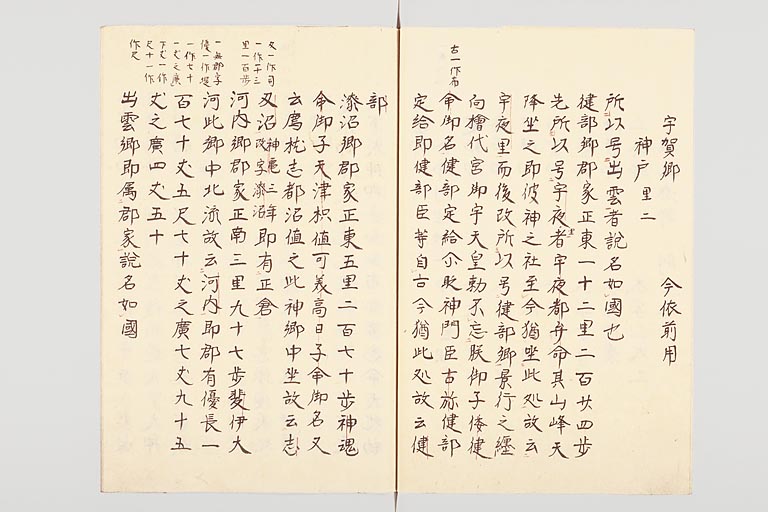 宇賀郷　今依前用
神戸里二
所以号出雲者説名如國也
健部郷郡家正東一十二里二百廿四歩
先所以号宇夜者宇夜都弁命其山峰天
降坐之即彼神之社至今猶坐此処故云
宇夜里而後改所以号健部郷景行之纏
向檜代宮御宇天皇勅不忘朕御子倭健
命御名健部定給尓時神門臣古祢健部
定給即健部臣等自古今猶此処故云健
古一作布
部
漆沼郷郡家正東五里二百七十歩神魂
命御子天津枳値可美高日子命御名又
云薦枕志都沼値之此神郷中坐故云志
刄沼神亀三年改字漆沼即有正倉
河内郷郡家正南三里九十七歩斐伊大
河此郷中北流故云河内即郡有優長一
百七十丈五尺七十丈之廣七丈九十五
丈之廣四丈五十
出雲郷即属郡家説名如國
一作十三
里一百歩
一無郡字
優一作堤
一作七十
一丈之廣
下丈一作
尺十一作
作尺